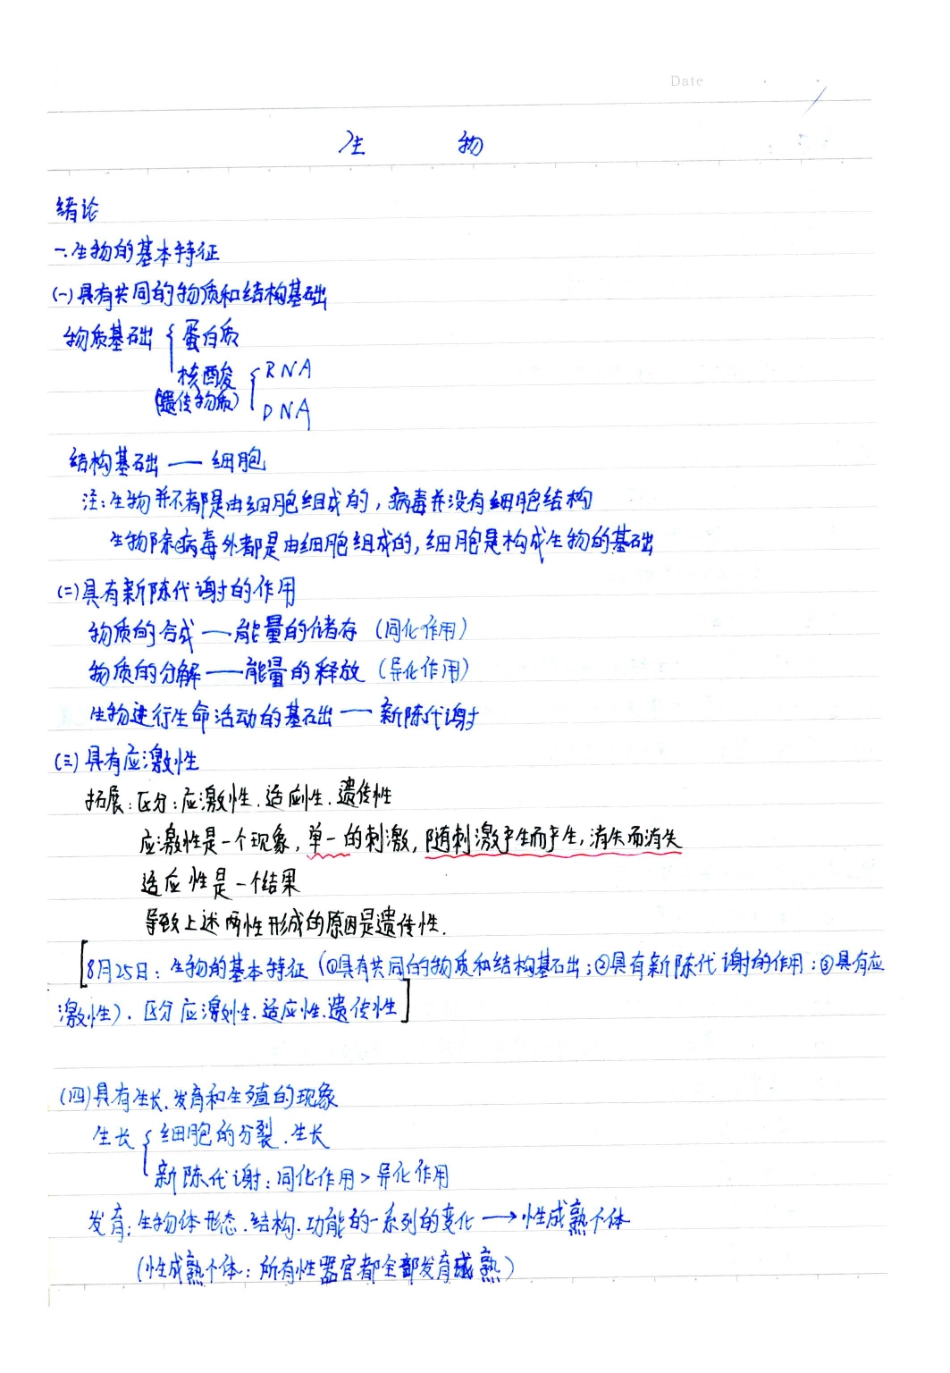 Date
生 物
绪论
一.生物的基本特征
(一)具有共同的物质和结构基础
物质基础 { 蛋白质
核酸 { RNA
(遗传物质) DNA
结构基础 — 细胞
注:生物并不都是由细胞组成的,病毒并没有细胞结构
生物除病毒外都是由细胞组成的,细胞是构成生物的基础
(二)具有新陈代谢的作用
物质的合成 — 能量的储存 (同化作用)
物质的分解 — 能量的释放 (异化作用)
生物进行生命活动的基础 — 新陈代谢
(三)具有应激性
拓展:区分:应激性.适应性.遗传性
应激性是一个现象,单一的刺激,随刺激产生而产生,消失而消失
适应性是一个结果
导致上述两性形成的原因是遗传性.
[8月25日:生物的基本特征(①具有共同的物质和结构基础;②具有新陈代谢的作用;③具有应
激性).区分应激性.适应性.遗传性]
(四)具有生长.发育和生殖的现象
生长 { 细胞的分裂.生长
新陈代谢:同化作用>异化作用
发育:生物体形态.结构.功能的一系列的变化 → 性成熟个体
(性成熟个体:所有性器官都全部发育成熟)